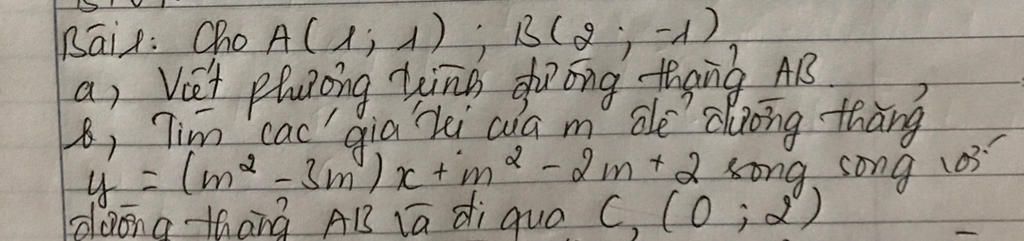 Bài 1: Cho A(1; 1); B(2; -1)
a, Viết phương trình đường thẳng AB.
b, Tìm các giá trị của m để đường thẳng
y = (m² - 3m)x + m² - 2m + 2 song song với
đường thẳng AB và đi qua C, (0; 2)